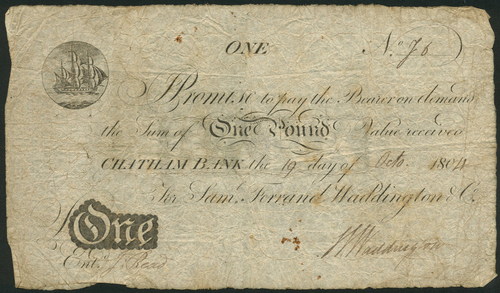 ONE
No. 76
I Promise to pay the Bearer on demand
the Sum of One Pound Value received
CHATHAM BANK the 19 day of Octr. 1804
For Saml. Ferrand Waddington & Co.
One
Entd. J. Read
S F Waddington